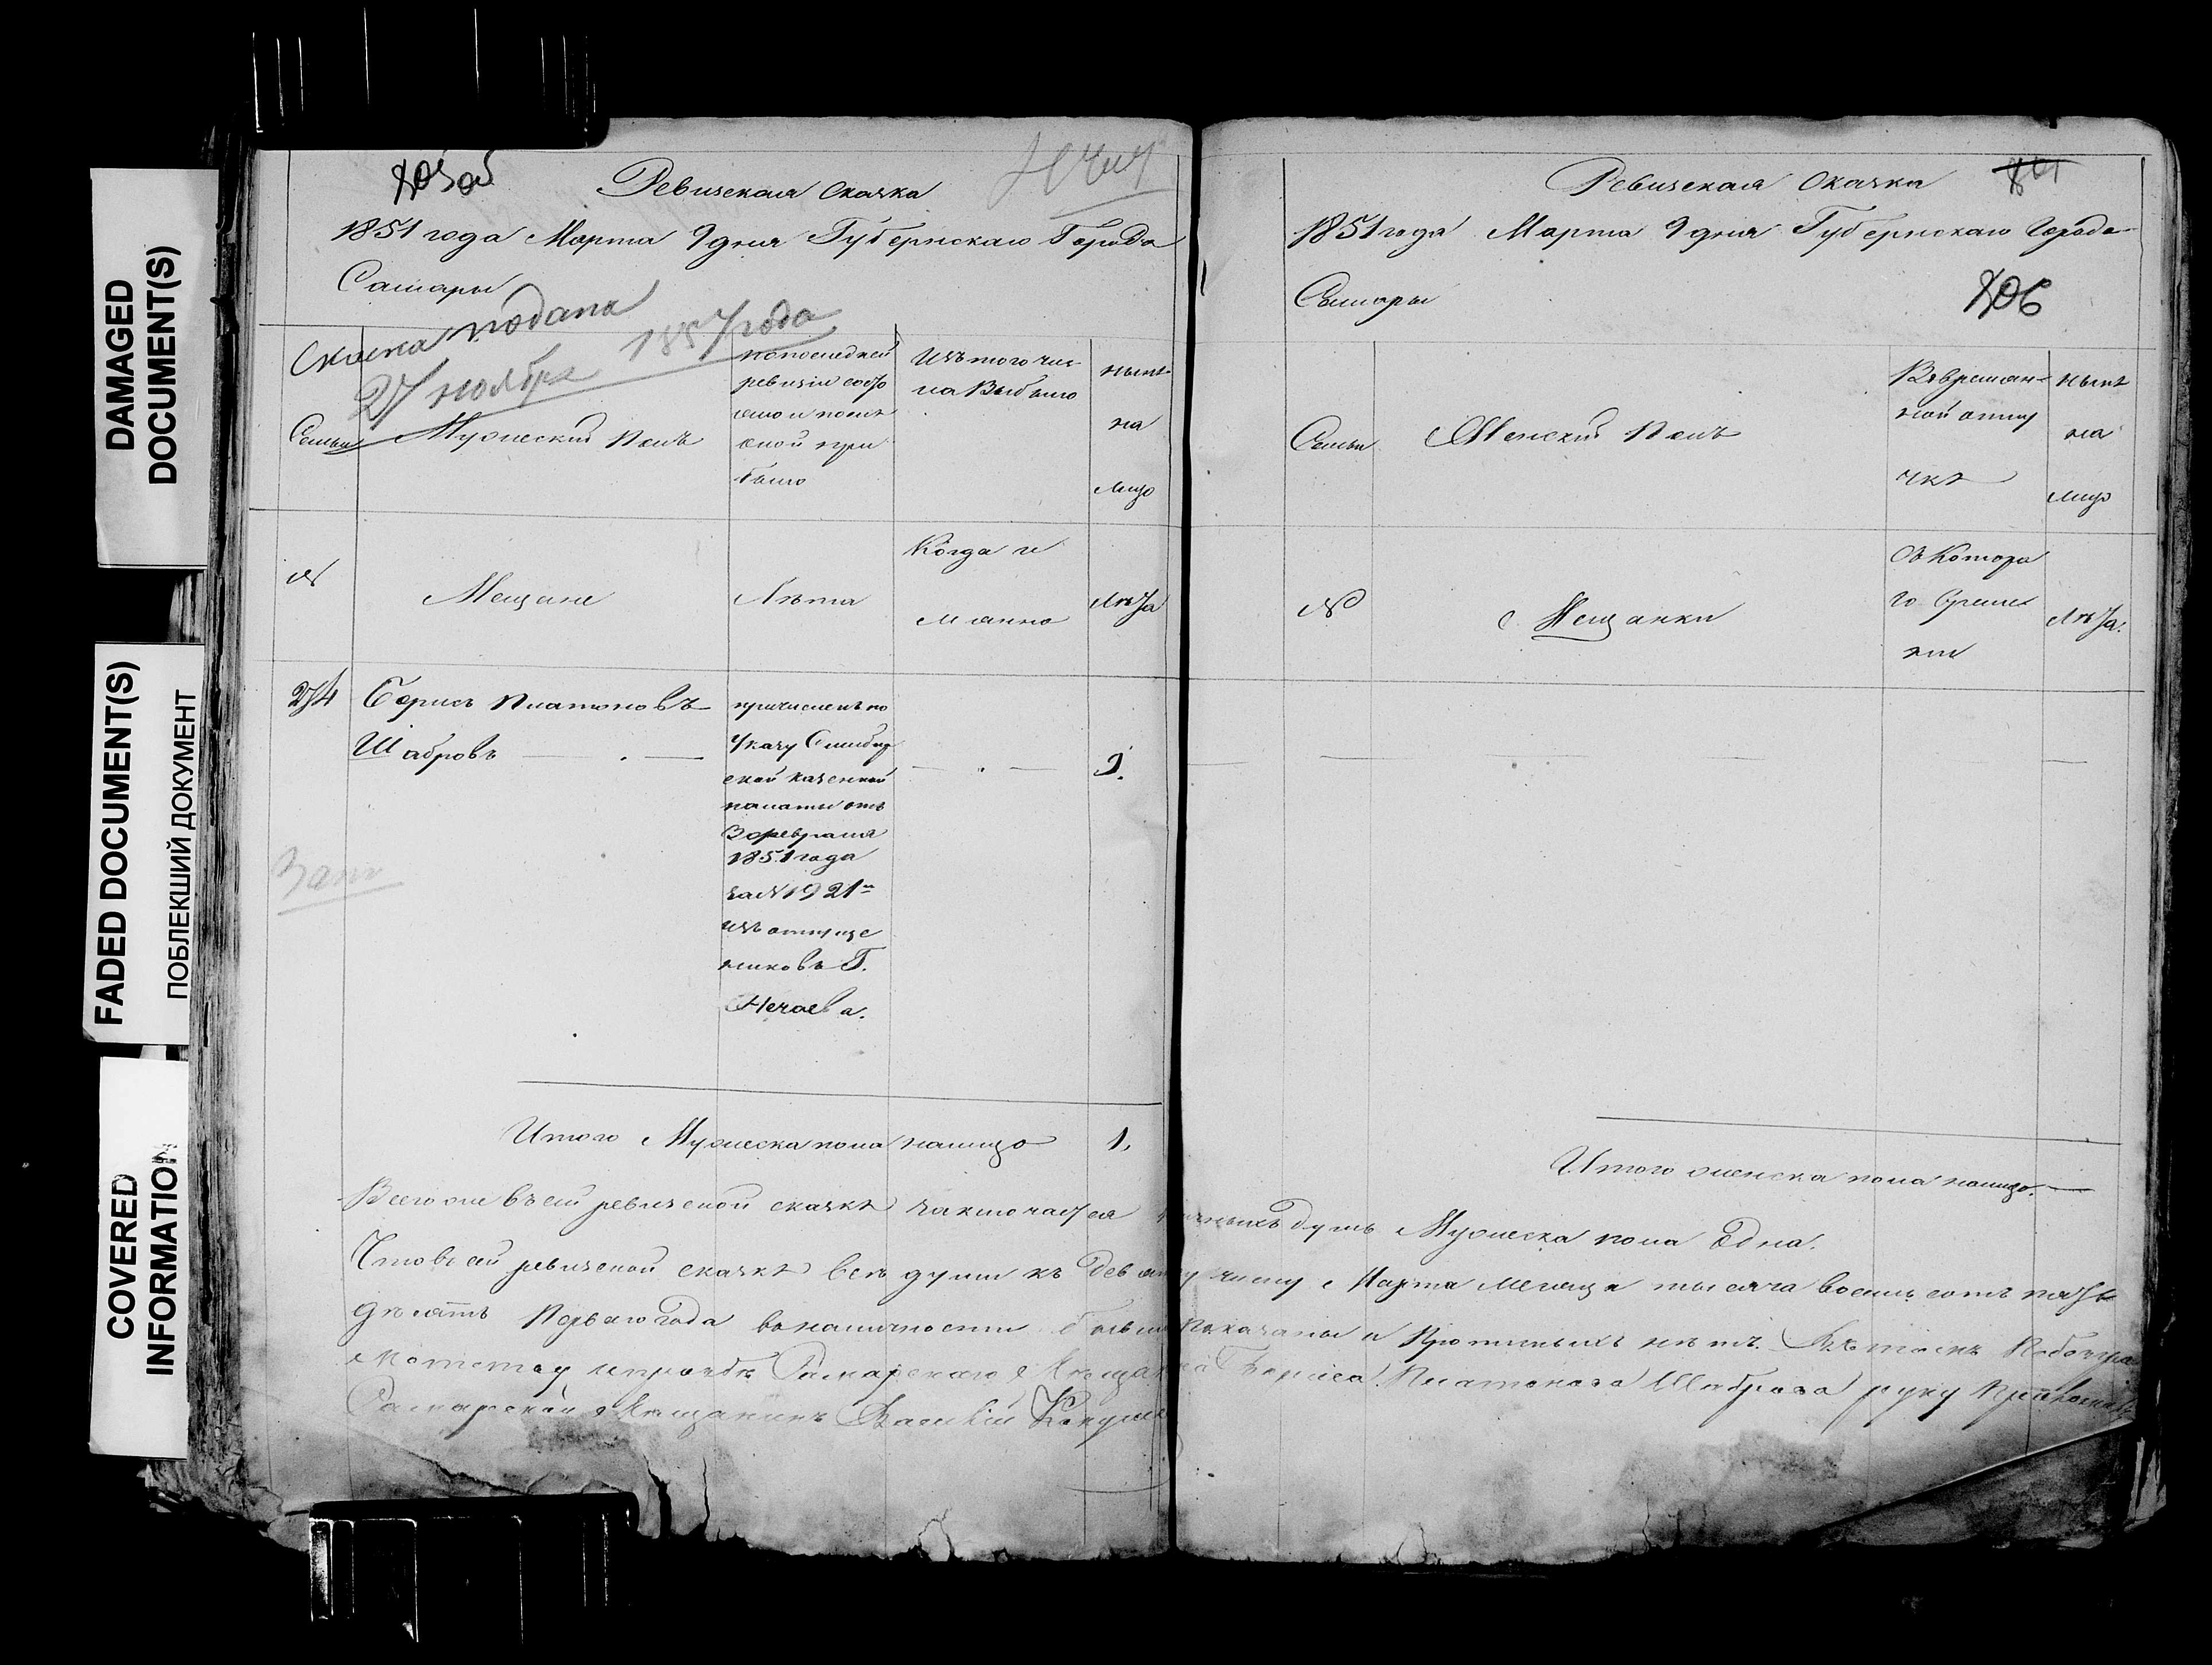 DAMAGED
DOCUMENT(S)
FADED DOCUMENT(S)
ПОБЛЕКШИЙ ДОКУМЕНТ
COVERED
INFORMATION
805об
Ревизская Сказка
1851 года Марта 9 дня Губернскаго Города
Самары
Сказка подана
27 ноября 1857 года
Семьи
Мужеский Полъ
по последней
ревизіи состо
яло и после
оной при
было
Изъ того чис
ла Выбыло
ныне
на
лицо
№
Мещане
Лѣта
Когда и
имянно
Лѣта
274
Борисъ Платоновъ
Шабровъ
причисленъ по
Указу Симбир
ской казенной
палаты отъ
3 февраля
1851 года
за № 1921м
изъ отпуще
никовъ Г.
Нечаева.
Запис
Итого Мужеска пола налицо 1.
Ревизская Сказка
1851 года Марта 9 дня Губернскаго Города
Самары
806
Семьи
Женский Полъ
Въ времян-
ной отлу
чкѣ
ныне
на
лицо
№
Мещанки
Съ Котора
го Време
ни
Лѣта.
Итого женска пола налицо.
Всего же въ сей ревизской сказкѣ заключается душъ Мужеска пола Една.
Что въ сей ревизской сказкѣ всѣ души къ девятому числу Марта месяца тысяча восемь сотъ пять
десятъ Перваго года въ наличности бывшие Показаны и Прописныхъ нѣтъ. Въ томъ
прозьбѣ Самарскаго Мещанина Бориса Платонова Шаброва руку Приложилъ
Самарской Мещанинъ Василій